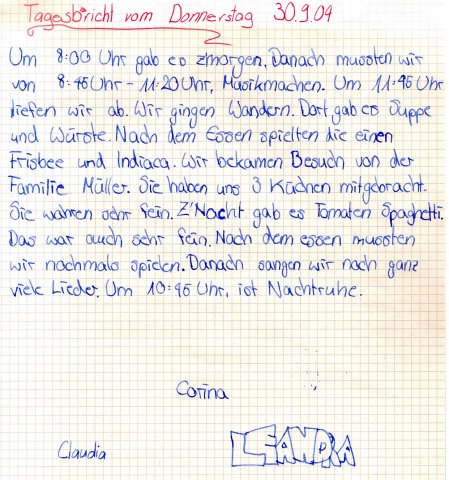 Tagesbricht vom Donnerstag 30.9.04
Um 8:00 Uhr gab es zmorgen. Danach mussten wir
von 8:45 Uhr - 11:20 Uhr, Musikmachen. Um 11:45 Uhr
liefen wir ab. Wir gingen Wandern. Dort gab es Suppe
und Würste. Nach dem Essen spielten die einen
Frisbee und Indiaca. Wir bekamen Besuch von der
Familie Müller. Sie haben uns 3 Küchen mitgebracht.
Sie wahren sehr fein. Z'Nacht gab es Tomaten Spaghetti.
Das war auch sehr fein. Nach dem essen mussten
wir nochmals spielen. Danach sangen wir noch ganz
viele Lieder. Um 10:45 Uhr, ist Nachtruhe.
Corina
Claudia LEANDRA